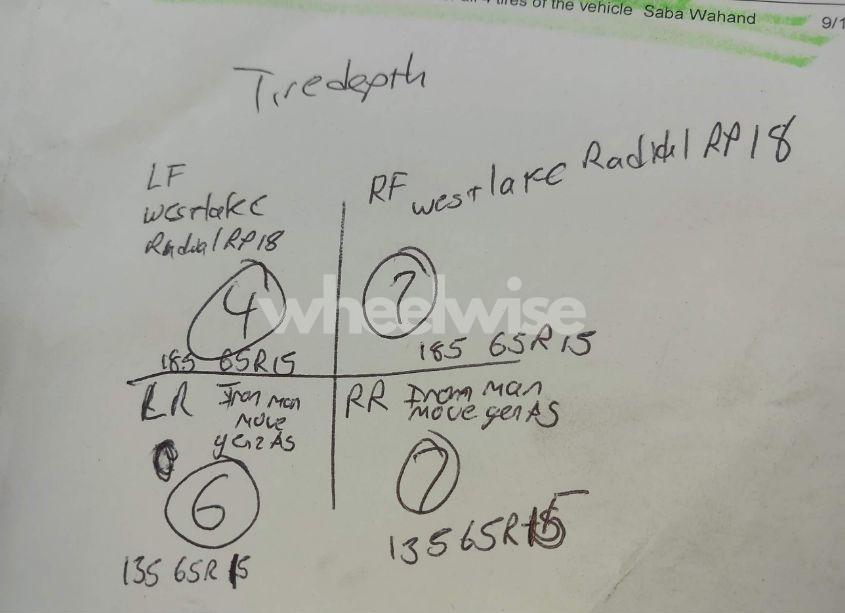 all 4 tires of the vehicle Saba Wahand
9/1
Tiredepth
LF
westlake
Radial RP18
4
185 65R15
RF westlake Radial RP18
7
185 65R15
LR Iron Man
Move
gen2 AS
6
135 65R 15
RR Iron Man
Move gen AS
7
135 65R 15
wheelwise